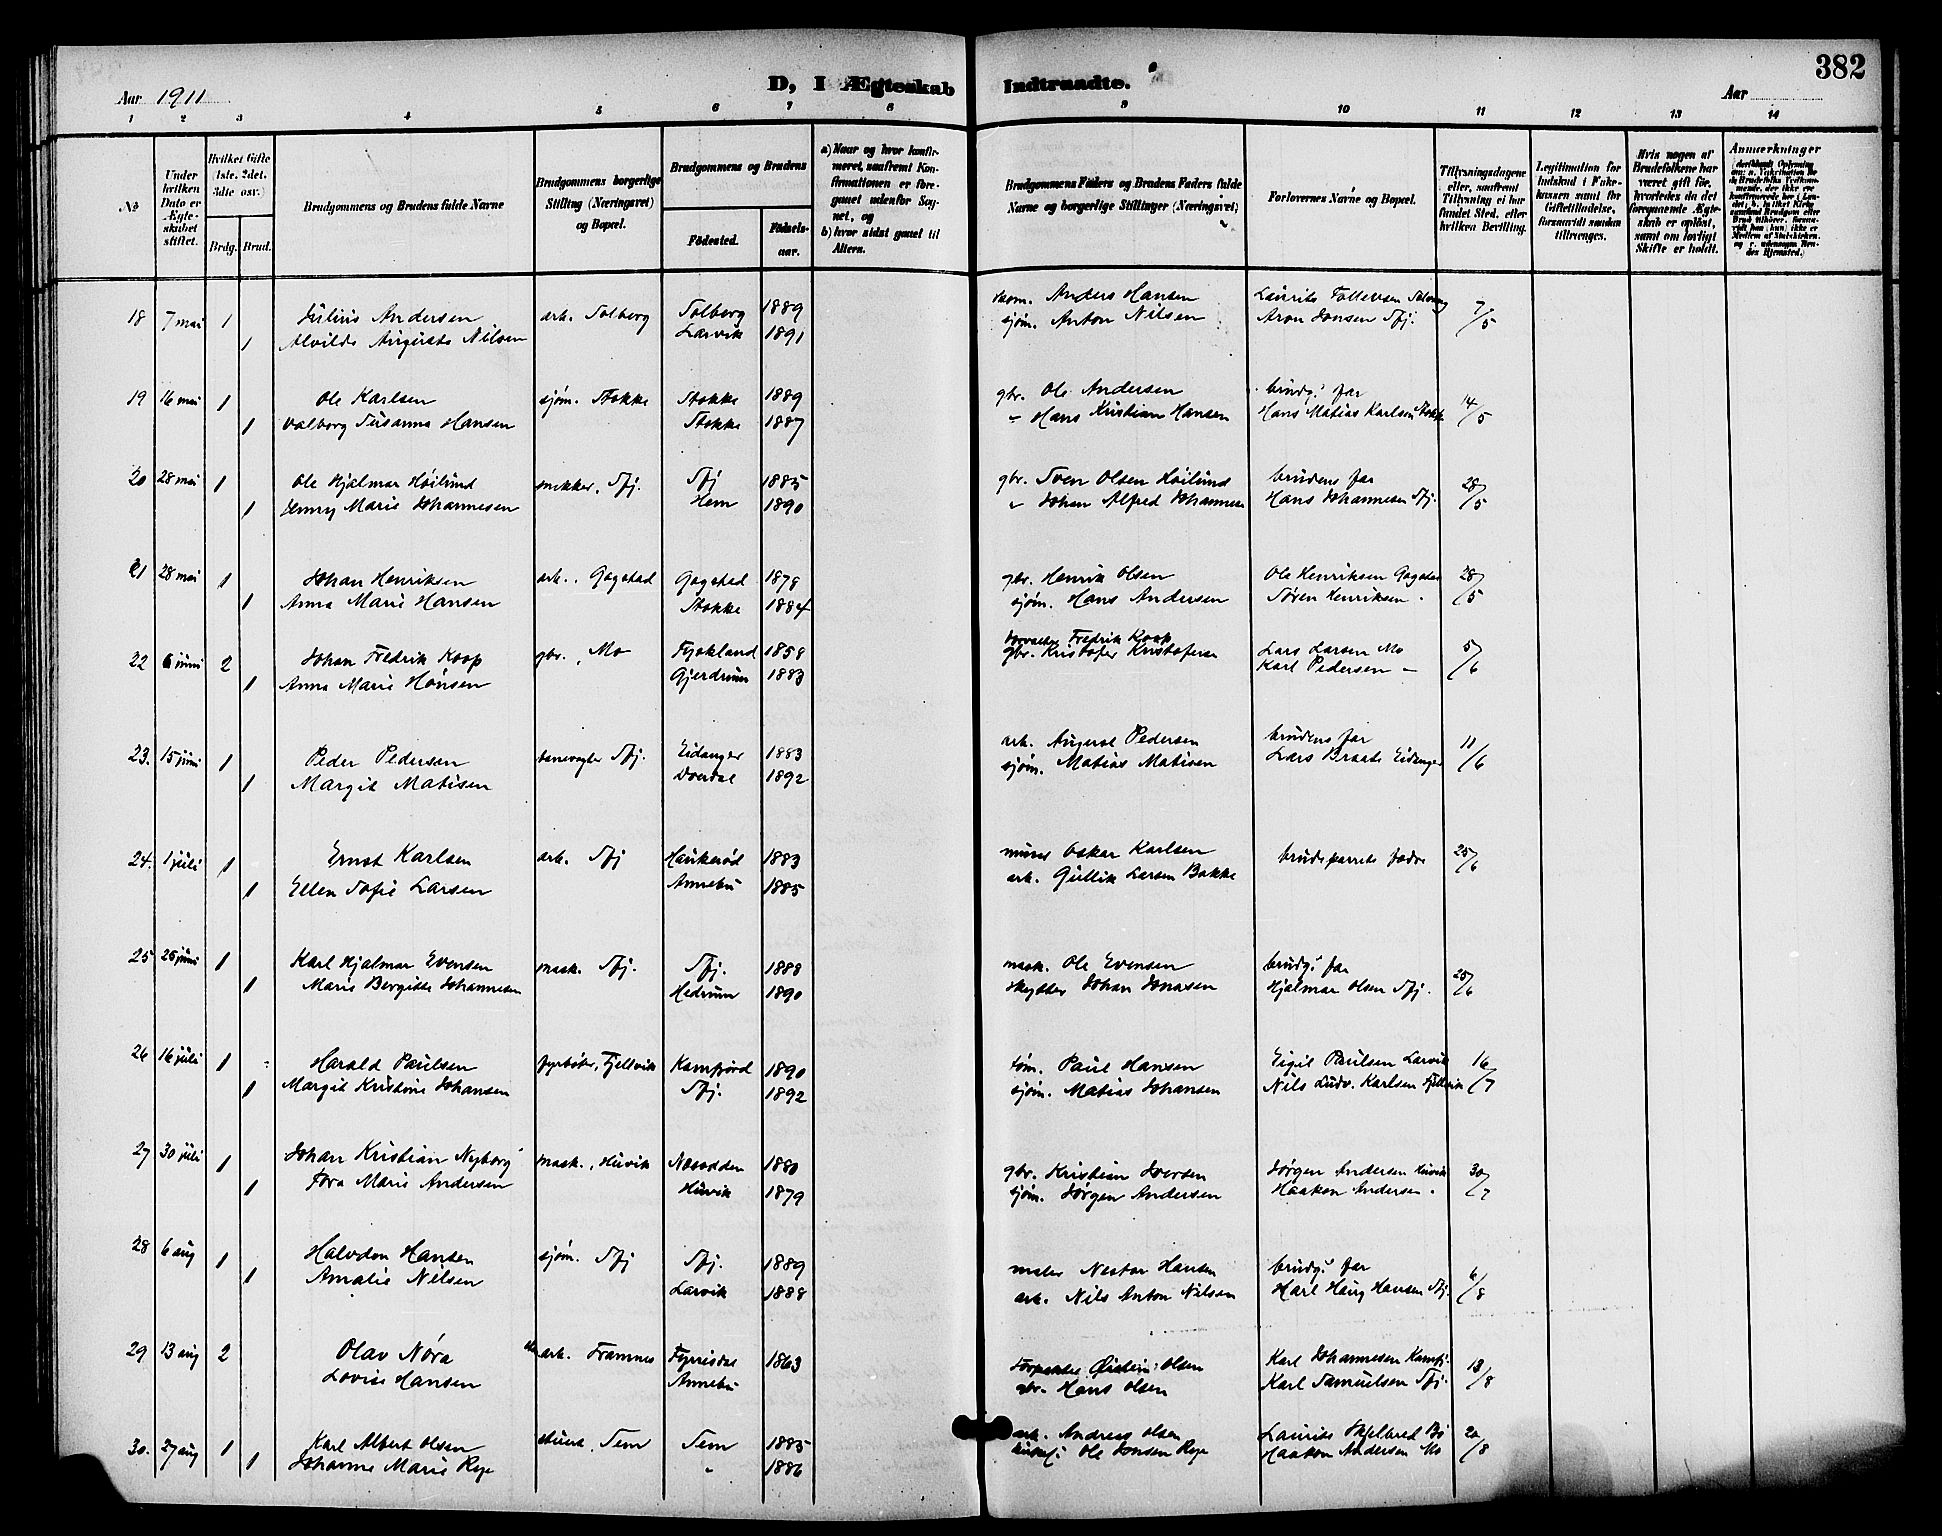 382
Aar 1911
D, I Ægteskab Indtraadte.
Aar
1 2 3 4 5 6 7 8 9 10 11 12 13 14
№
Under hvilken Dato er Ægteskabet stiftet.
Hvilket Gifte (1ste, 2det, 3die osv.)
Brdg. Brud.
Brudgommens og Brudens fulde Navne
Brudgommens borgerlige Stilling (Næringsvei) og Bopæl.
Brudgommens og Brudens
Fødested. Fødselsaar.
a) Naar og hvor konfirmeret, saafremt Konfirmationen er foregaaet udenfor Sognet, og
b) hvor sidst gaaet til Alters.
Brudgommens Faders og Brudens Faders fulde Navne og borgerlige Stillinger (Næringsvei)
Forlovernes Navne og Bopæl.
Tillysningsdagene eller, saafremt Tillysning ei har fundet Sted, efter hvilken Bevilling.
Legitimation for Indskud i Enkekassen samt for Giftetilladelse, forsaavidt saadan tiltrænges.
Hvis nogen af Brudefolkene har været gift før, hvorledes da det foregaaende Ægteskab er opløst, samt om lovligt Skifte er holdt.
Anmærkninger
18 7 mai 1 Julius Andersen arb. Solberg Solberg 1889 Anders Hansen 7/5
1 Alvilde Augusta Nilsen Larvik 1891 sjøm. Anton Nilsen Aron Jonsen Sfj.
19 16 mai 1 Ole Karlsen sjøm. Stokke Stokke 1889 gbr. Ole Andersen brudg's far 14/5
1 Valborg Susanna Hansen Stokke 1887 " Hans Kristian Hansen Hans Matias Karlsen Stokke
20 28 mai 1 Ole Hjalmar Høilund snekker, Sfj. Sfj 1885 gbr. Sven Olsen Høilund brudens far 28/5
1 Jenny Marie Johannesen Hem 1890 " Johan Alfred Johannesen Hans Johannesen Sfj.
21 28 mai 1 Johan Henriksen arb., Gogstad Gogstad 1878 gbr. Henrik Olsen Ole Henriksen Gogstad 28/5
1 Anna Marie Hansen Stokke 1884 sjøm. Hans Andersen Søren Henriksen "
22 6 juni 2 Johan Fredrik Koop gbr., Mo 1858 Fredrik Koop Lars Larsen Mo 5/6
1 Anna Marie Hansen Gjerdrum 1883 gbr. Kristofer Kristofersen Karl Pedersen –
23. 15 juni 1 Peder Pedersen banevogter Sfj. Eidanger 1883 arb. August Pedersen brudens far 11/6
1 Margit Matisen 1892 sjøm. Matias Matisen Lars Braate Eidanger
24. 1 juli 1 Ernst Karlsen arb. Sfj Haukerød 1883 murer Oskar Karlsen brudeparrets fædre 25/6
1 Ellen Sofie Larsen Annebu 1885 arb. Gullik Larsen Bakke
25 25 juni 1 Karl Hjalmar Evensen mask. Sfj. Sfj. 1888 mask. Ole Evensen brudg's far 25/6
1 Marie Bergitte Johannesen Hedrum 1890 skytter Johan Jonasen Hjalmar Olsen Sfj.
26 16 juli 1 Harald Paulsen fyrbøter, Fjellvik Kamfjord 1890 tøm. Paul Hansen Eigil Paulsen Larvik 16/7
1 Margit Kristine Johansen Sfj. 1892 sjøm. Matias Johansen Nils Ludv. Karlsen Fjellvik
27 30 juli 1 Johan Kristian Nyborg mask., Husvik Næsodden 1880 gbr. Kristian Iversen Jørgen Andersen Husvik 30/7
1 Tora Marie Andersen Husvik 1879 sjøm. Jørgen Andersen Haakon Andersen "
28 6 aug 1 Halvdan Hansen sjøm. Sfj Sfj. 1889 maler Nestor Hansen brudg's far 6/8
1 Amalie Nilsen Larvik 1888 arb. Nils Anton Nilsen Karl Haug Hansen Sfj.
29 13 aug 2 Olav Nóra arb. Framnes Fyrrisdal 1863 Øistein Olsen Karl Johannesen Kamfj. 13/8
Lovise Hansen Annebu gbr. Hans Olsen Karl Samuelsen Sfj.
30. 27 aug 1 Karl Albert Olsen Sem Sem 1885 arb. Andreas Olsen Laurits Skjelbred Bø 20/8
1 Johanne Marie Roe " 1886 Ole Jonsen Roe Haakon Andersen Mo